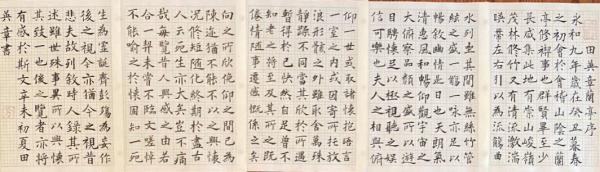 田英章蘭亭序
永和九年歲在癸丑暮春
之初會於會稽山陰之蘭
亭修禊事也群賢畢至少
長咸集此地有崇山峻嶺
茂林修竹又有清流激湍
映帶左右引以為流觴曲
水列坐其間雖無絲竹管
絃之盛一觴一詠亦足以
暢敘幽情是日也天朗氣
清惠風和暢仰觀宇宙之
大俯察品類之盛所以遊
目騁懷足以極視聽之娛
信可樂也夫人之相與俯
仰一世或取諸懷抱語言
一室之內或因寄所托放
浪形骸之外雖取舍萬殊
靜躁不同當其欣於所遇
暫得於己快然自足曾不
知老之將至及其所之既
倦情隨事遷感慨係之矣
向之所欣俛仰之間已為
陳迹猶不能不以之興懷
況脩短隨化終期於盡古
人云死生亦大矣豈不痛
哉每覽昔人興感之由若
合一契未嘗不臨文嗟悼
不能喻之於懷固知一死
生為虛誕齊彭殤為妄作
後之視今亦猶今之視昔
悲夫故列敘時人錄其所
述雖世殊事異所以興懷
其致一也後之覽者亦將
有感於斯文辛未初夏田
英章書